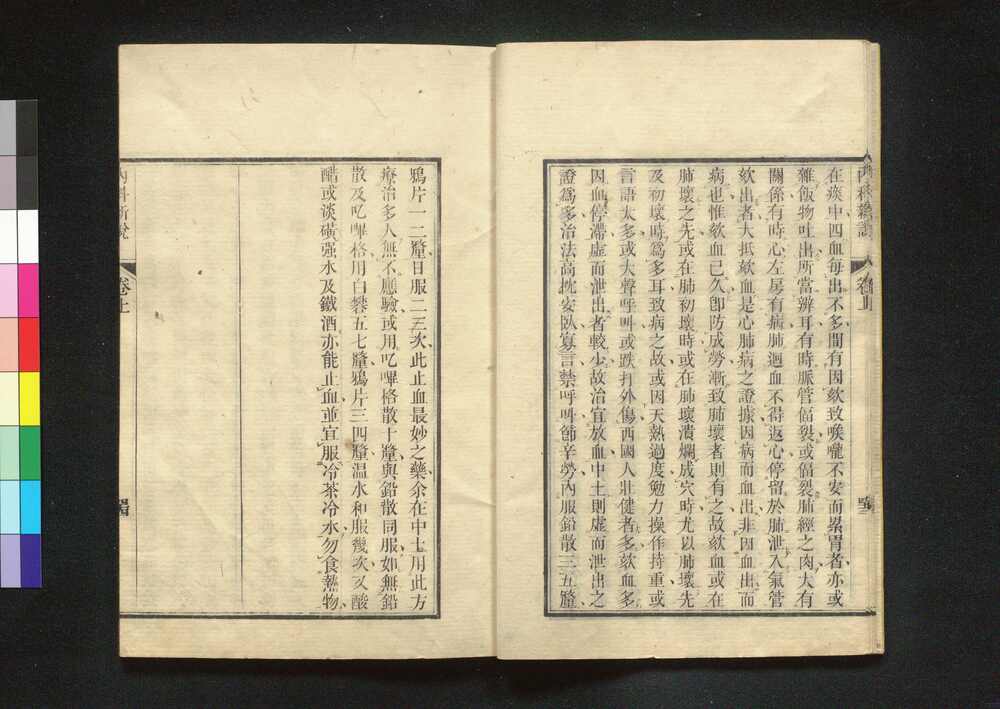 內科新說
卷上
在痰中四血每出不多間有因欬致喉嚨不安而累胃者亦或
雜飯物吐出所當辨耳有時脈管偪裂或偪裂肺經之肉大有
關係有時心左房有病肺迴血不得返心停留於肺泄入氣管
欬出者大抵欬血是心肺病之證據因病而血出非因血出而
病也惟欬血已久卽防成勞漸致肺壞者則有之故欬血或在
肺壞之先或在肺初壞時或在肺壞潰爛成穴時尤以肺壞先
及初壞時爲多耳致病之故或因天熱過度勉力操作持重或
言語太多或大聲呼叫或跌打外傷西國人壯健者多欬血多
因血停滯虛而泄出者較少故治宜放血中土則虛而泄出之
證爲多治法高枕安臥寡言禁呼呌節辛勞內服鉛散三五釐
鴉片一二釐日服二三次此止血最妙之藥余在中土用此方
療治多人無不應驗或用叱嗶格散十釐與鉛散同服如無鉛
散及叱嗶格用白礬五七釐鴉片三四釐温水和服幾次又酸
醋或淡磺强水及鐵酒亦能止血並宜服冷茶冷水勿食熱物
內科新說
卷上